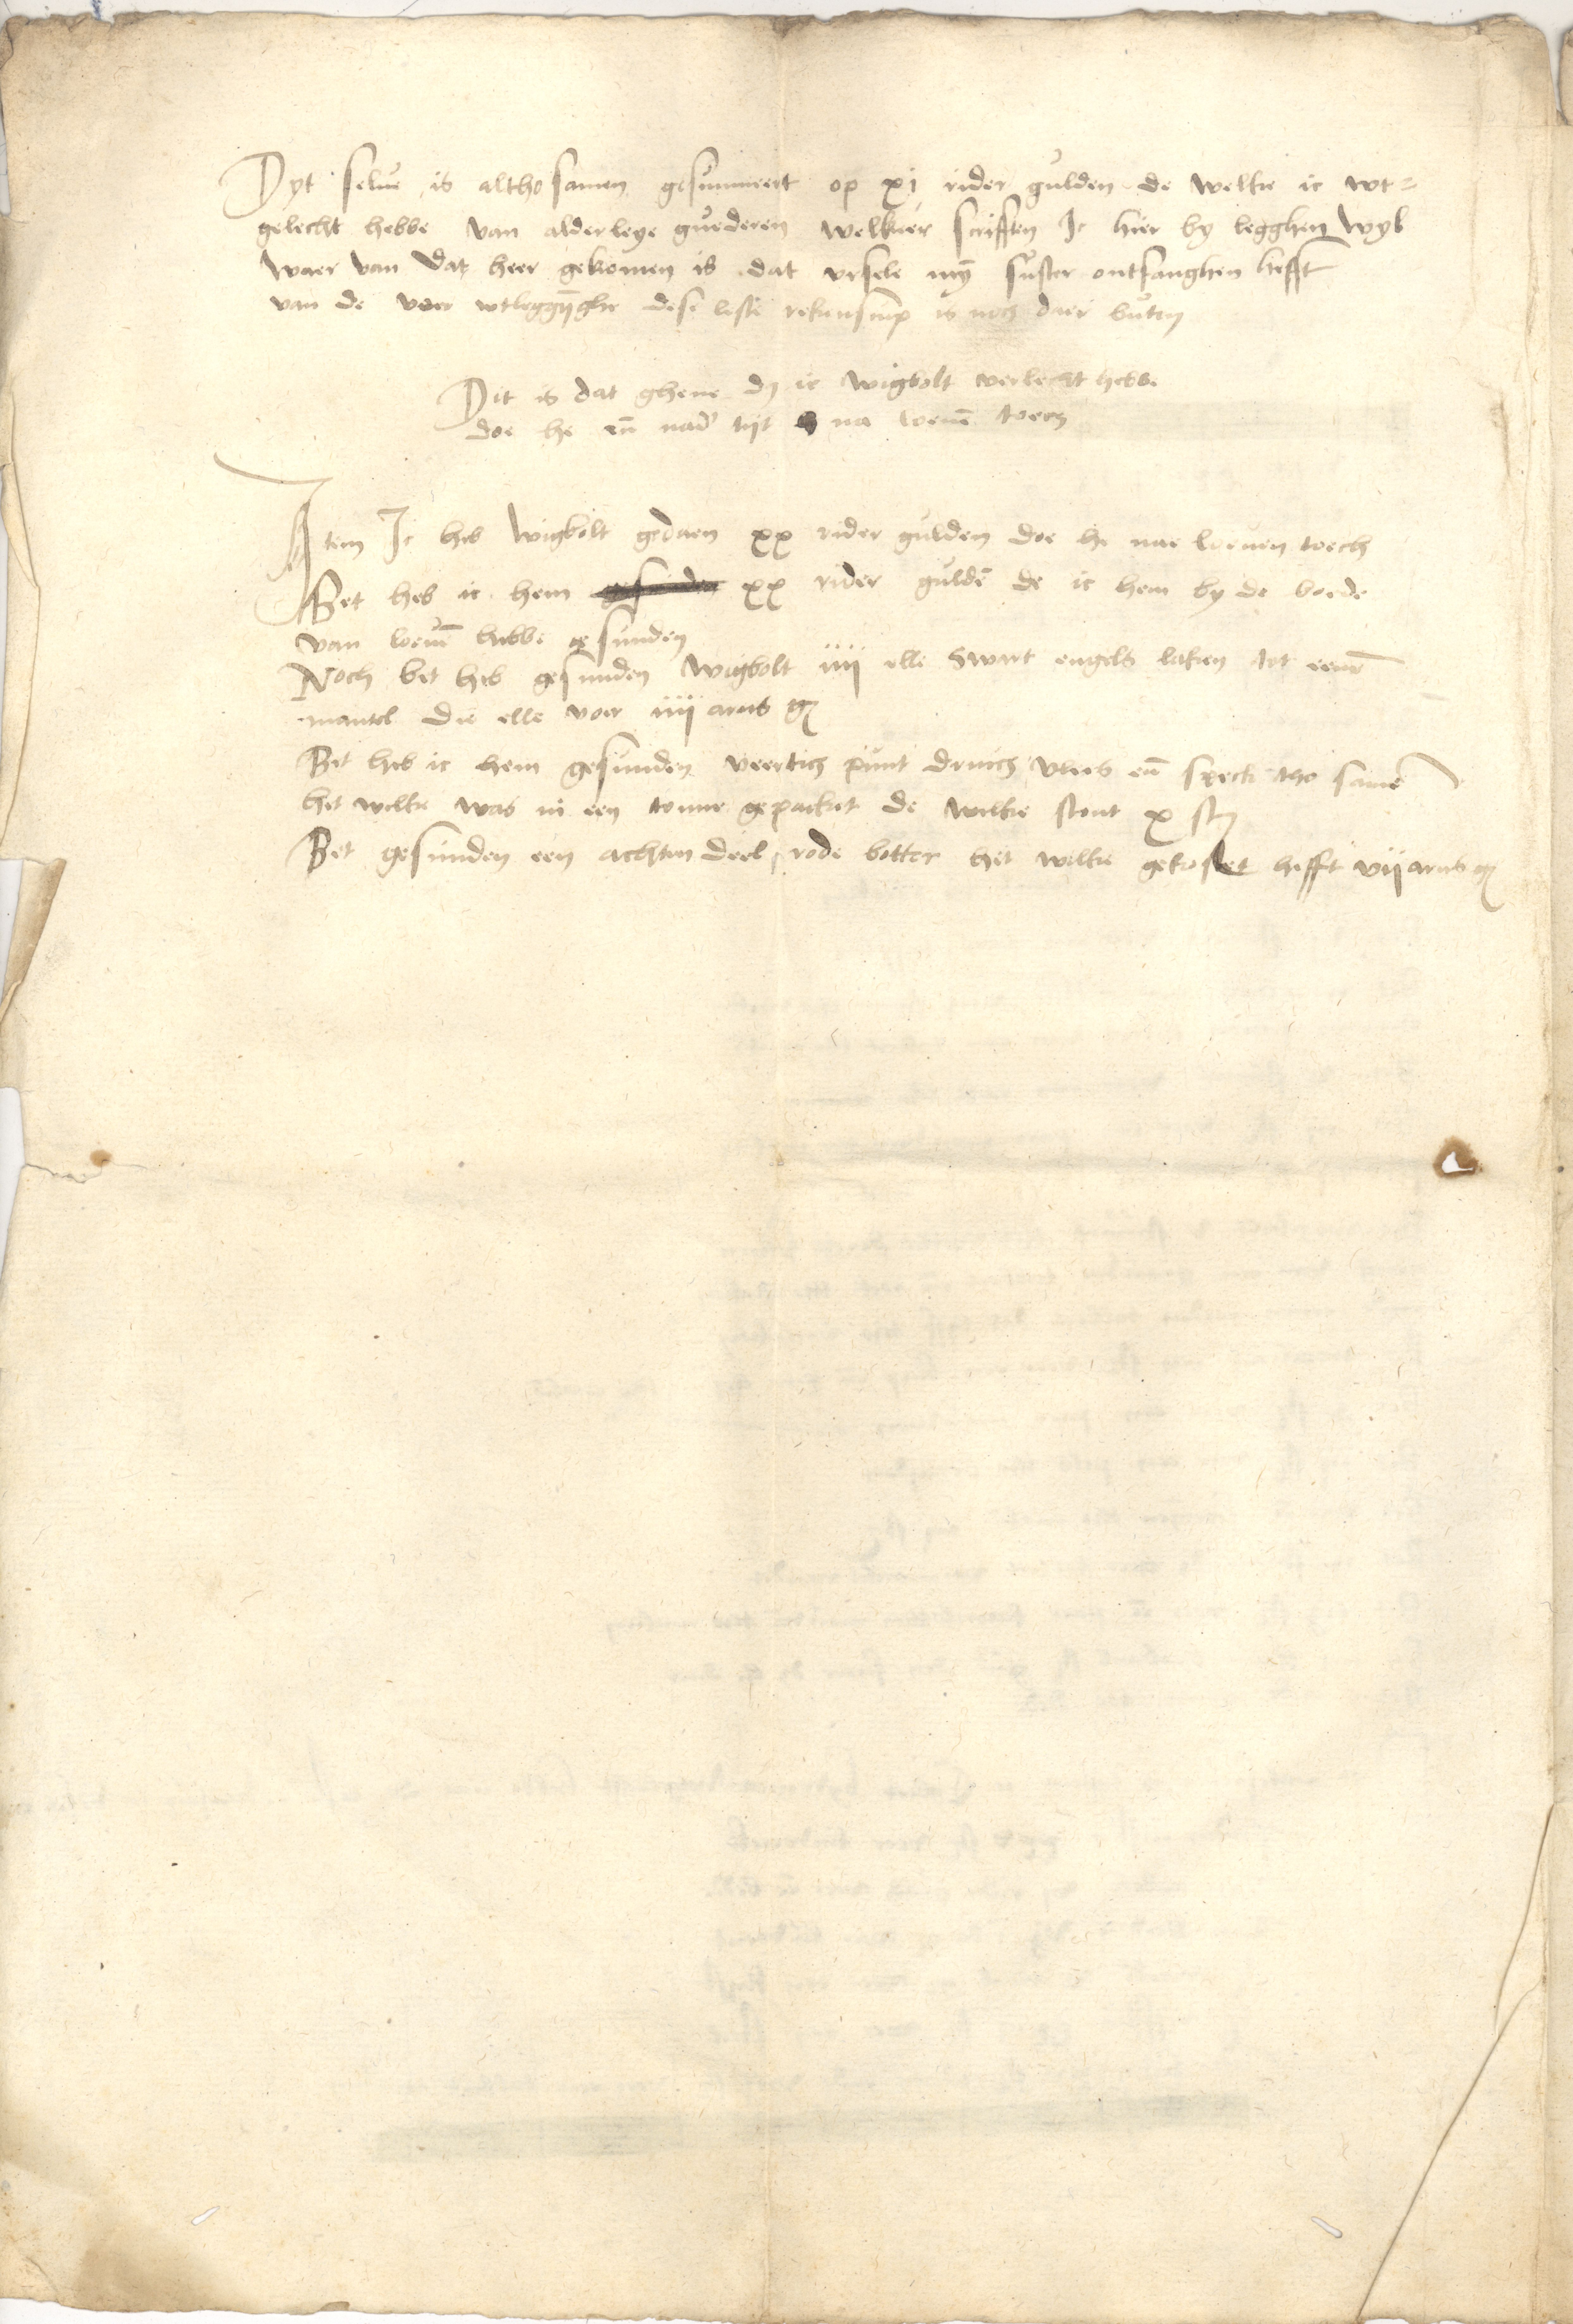 Dyt selue is altho samen gesummeert op xj rider gulden de welke ic wt=
gelecht hebbe van alderleye guederen welker scrifften Jc hier by legghen wyl
waer van dat heer gekomen is dat vrsele mÿ suster ontfanghen hefft
van de voer wtleggÿghe dese leste is noch daer buten
Dit is dat ghene dz ic wigbolt verlecht hebbe
doe he nad' tijt na loeuē toech
Jtem Jc heb wigbolt gedaen xx rider gulden doe he nae loeuen toech
Bet heb ic hem gesunden xx rider guldē de ic hem by de boede
van loeuē hebbe gesunden
Noch bet heb gesunden wigbolt iiij elle swart engels laken tot eenē
mantel die elle voer iiij arns g
Bet heb ic hem gesunden veertich punt druich vlees eñ speck tho samē
het welke was in een tonne gepacket de welke stont x st
Bet gesunden een achten deel rode botter het welke gekostet hefft vij arns g